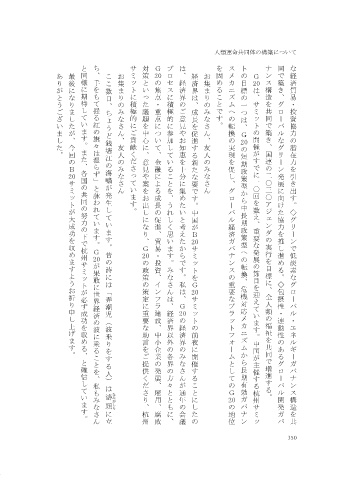 人類運命共同体の構築について
な経済貿易・投資協力の潜在力を引き出す。◇グリーンで低炭素なグローバル・エネルギーガバナンス構造を共
同で築き、グローバルなグリーン発展に向けた協力を推し進める。◇包摂性・連動性のあるグローバル開発ガバ
ナンス構造を共同で築き、国連の二〇三〇アジェンダの実行を目標に、全人類の福祉を共同で増進する。
G20は、サミットの開催がすでに一〇回を数え、重要な発展の節目を迎えています。中国が主催する杭州サミッ
トの目標の一つは、G20の短期政策型から中長期政策型への転換、危機対応メカニズムから長期有効ガバナン
スメカニズムへの転換の実現を促し、グローバル経済ガバナンスの重要なプラットフォームとしてのG20の地位
を固めることです。
お集まりのみなさん、友人のみなさん
経済界は、成長を促進する新たな要です。中国がB20サミットをG20サミットの前夜に開催することにしたの
は、経済界のご意見やお知恵を十分に集めたいと考えたからです。私は、G20の経済界のみなさんが通年の会議
プロセスに積極的に参加していることを、うれしく思います。みなさんは、経済界以外の各界の方々とともに、
G20の焦点・重点について、金融による成長の促進、貿易・投資、インフラ建設、中小企業の発展、雇用、腐敗
対策といった議題を中心に、意見や案をお出しになり、G20の政策の策定に重要な助言をご提供くださり、杭州
サミットに積極的にご貢献くださっています。
お集まりのみなさん、友人のみなさん
ここ数日、ちょうど銭塘江の海嘯が発生しています。昔の詩には「弄潮児（波乗りをする人）は濤頭に立
ち、手をもて掲る紅の旗々は湿らず」と詠われています。G20が果敢に世界経済の波に乗ることを、私もみなさん
と同様に期待しています。また、各国の共同の努力の下で杭州サミットが必ず成功を収める、と確信しています。
最後になりましたが、今回のB20サミットが大成功を収めますようお祈り申し上げます。
ありがとうございました。
350